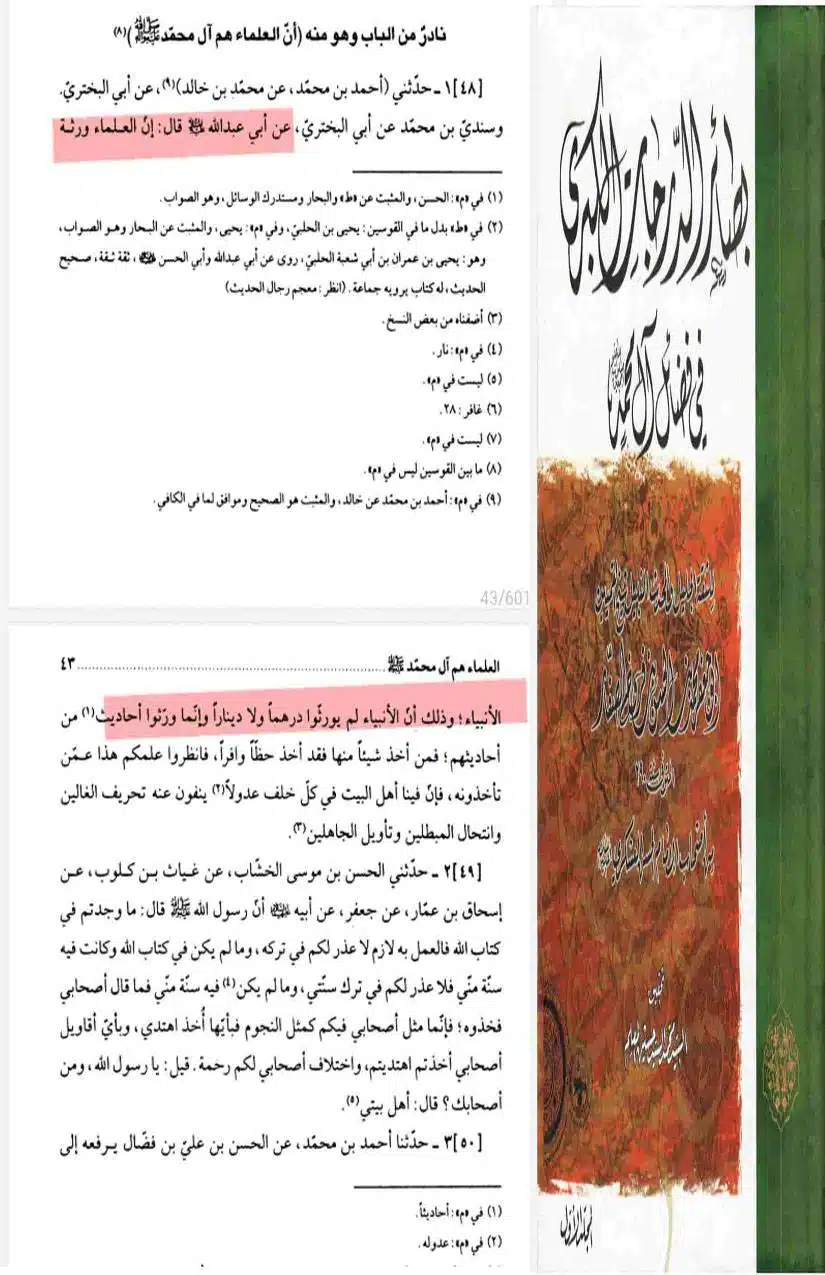 نادرٌ من الباب وهو منه (أنّ العلماء هم آل محمّد ﷺ)(٨)
[٤٨]١ ـ حدّثني (أحمد بن محمّد، عن محمّد بن خالد)(٩)، عن أبي البختريّ.
وسنديّ بن محمد عن أبي البختريّ، عن أبي عبدالله ﷺ قال: إنّ العلماء ورثة
(١) في «م»: الحسن، والمثبت عن «ط» والبحار ومستدرك الوسائل، وهو الصواب.
(٢) في «ط» بدل ما في القوسين: يحيى بن الحلبيّ، وفي «م»: يحيى، والمثبت عن البحار وهو الصواب،
وهو: يحيى بن عمران بن أبي شعبة الحلبيّ، روى عن أبي عبدالله وأبي الحسن ﷺ، ثقة ثقة، صحيح
الحديث، له كتاب يرويه جماعة. (انظر: معجم رجال الحديث)
(٣) أضفناه من بعض النسخ.
(٤) في «م»: نار.
(٥) ليست في «م».
(٦) غافر: ٢٨.
(٧) ليست في «م».
(٨) ما بين القوسين ليس في «م».
(٩) في «م»: أحمد بن محمّد عن خالد، والمثبت هو الصحيح وموافق لما في الكافي.
43/601
العلماء هم آل محمّد ﷺ ........ ٤٣
الأنبياء؛ وذلك أنّ الأنبياء لم يورثّوا درهماً ولا ديناراً وإنّما ورّثوا أحاديث(١) من
أحاديثهم؛ فمن أخذ شيئاً منها فقد أخذ حظّاً وافراً، فانظروا علمكم هذا عمّن
تأخذونه، فإنّ فينا أهل البيت في كلّ خلف عدولاً(٢) ينفون عنه تحريف الغالين
وانتحال المبطلين وتأويل الجاهلين(٣).
[٤٩]٢ ـ حدّثني الحسن بن موسى الخشّاب، عن غياث بن كلوب، عن
إسحاق بن عمّار، عن جعفر، عن أبيه ﷺ أنّ رسول الله ﷺ قال: ما وجدتم في
كتاب الله فالعمل به لازم لا عذر لكم في تركه، وما لم يكن في كتاب الله وكانت فيه
سنّة منّي فلا عذر لكم في ترك سنّتي، وما لم يكن(٤) فيه سنّة منّي فما قال أصحابي
فخذوه؛ فإنّما مثل أصحابي فيكم كمثل النجوم فبأيّها أُخذ اهتدي، وبأيّ أقاويل
أصحابي أخذتم اهتديتم، واختلاف أصحابي لكم رحمة. قيل: يا رسول الله، ومن
أصحابك؟ قال: أهل بيتي(٥).
[٥٠]٣ ـ حدّثنا أحمد بن محمّد، عن الحسن بن عليّ بن فضّال يرفعه إلى
(١) في «م»: أحاديثاً.
(٢) في «م»: عدوله.
بصائر الدّرجات الكبرى
في فضائل آل محمّد ﷺ
تحقيق
المجلد الأوّل